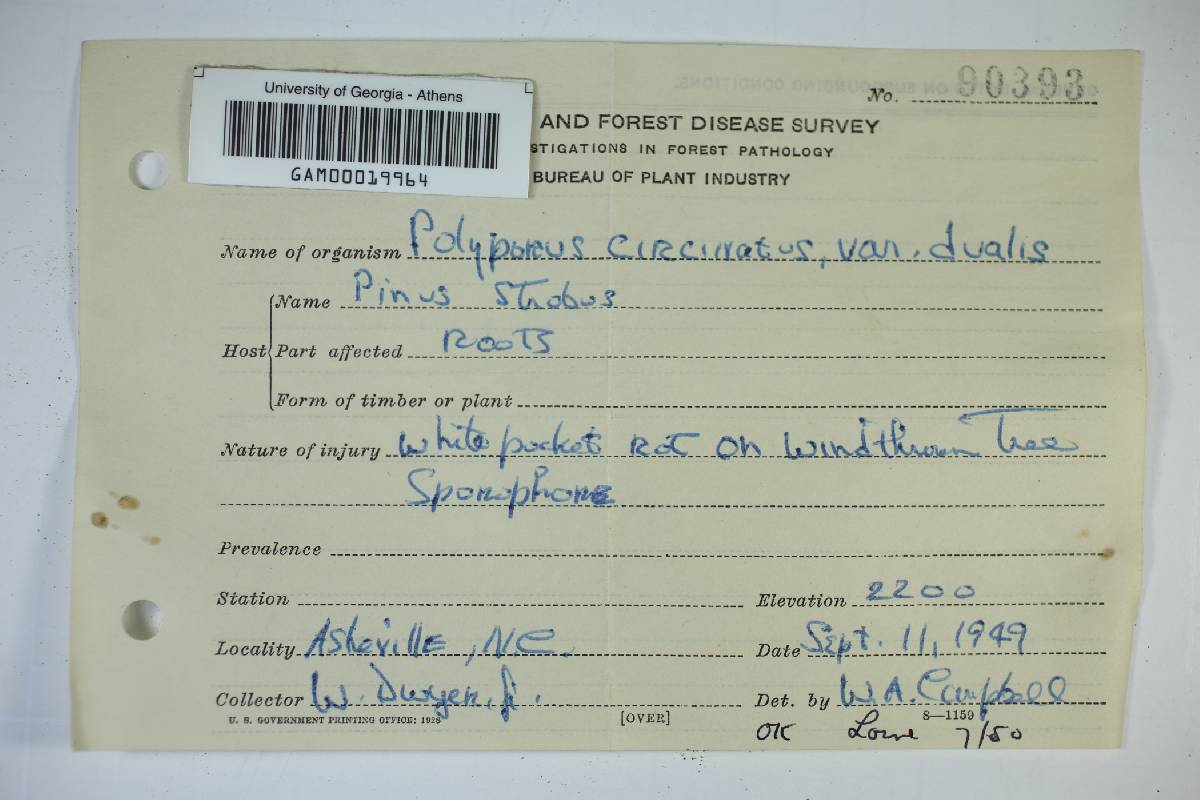 University of Georgia - Athens
GAM00019964
No. 90393
AND FOREST DISEASE SURVEY
STIGATIONS IN FOREST PATHOLOGY
BUREAU OF PLANT INDUSTRY
Name of organism Polyporus circinatus, var. dualis
Host
Name Pinus Strobus
Part affected Roots
Form of timber or plant
Nature of injury White pocket rot on windthrown Tree
Sporophore
Prevalence
Station Elevation 2200
Locality Asheville, NC. Date Sept. 11, 1949
Collector W. Dwyer, Jr. Det. by W.A. Campbell
U. S. GOVERNMENT PRINTING OFFICE: 1928 [OVER] 8—1159
OK Lowe 7/50